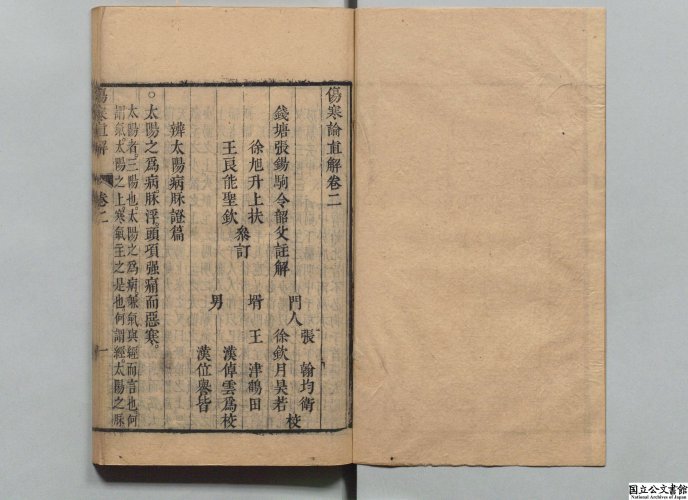 傷寒論直解卷二
錢塘張錫駒令韶父註解
門人
張 翰均衛
徐欽月昊若
校
徐旭升上扶
王良能聖欽
叅訂
壻 王 津鶴田
男
漢倬雲爲
漢位譽皆
校
辨太陽病脉證篇
○太陽之爲病脉浮頭項强痛而惡寒。
太陽者。三陽也。太陽之爲病。脈氣與經而言也。何
謂氣。太陽之上。寒氣主之是也。何謂經。太陽之脉
傷寒直解
卷二
一
国立公文書館
National Archives of Japan